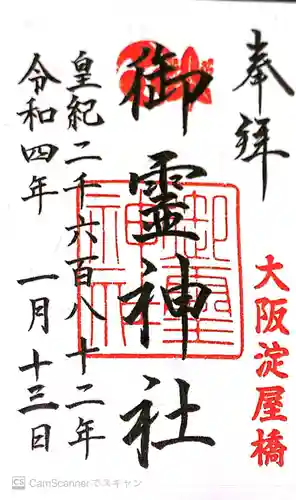 奉拝
大阪淀屋橋
御霊神社
皇紀二千六百八十二年
令和四年 一月十三日
御霊神社
CS CamScannerでスキャン